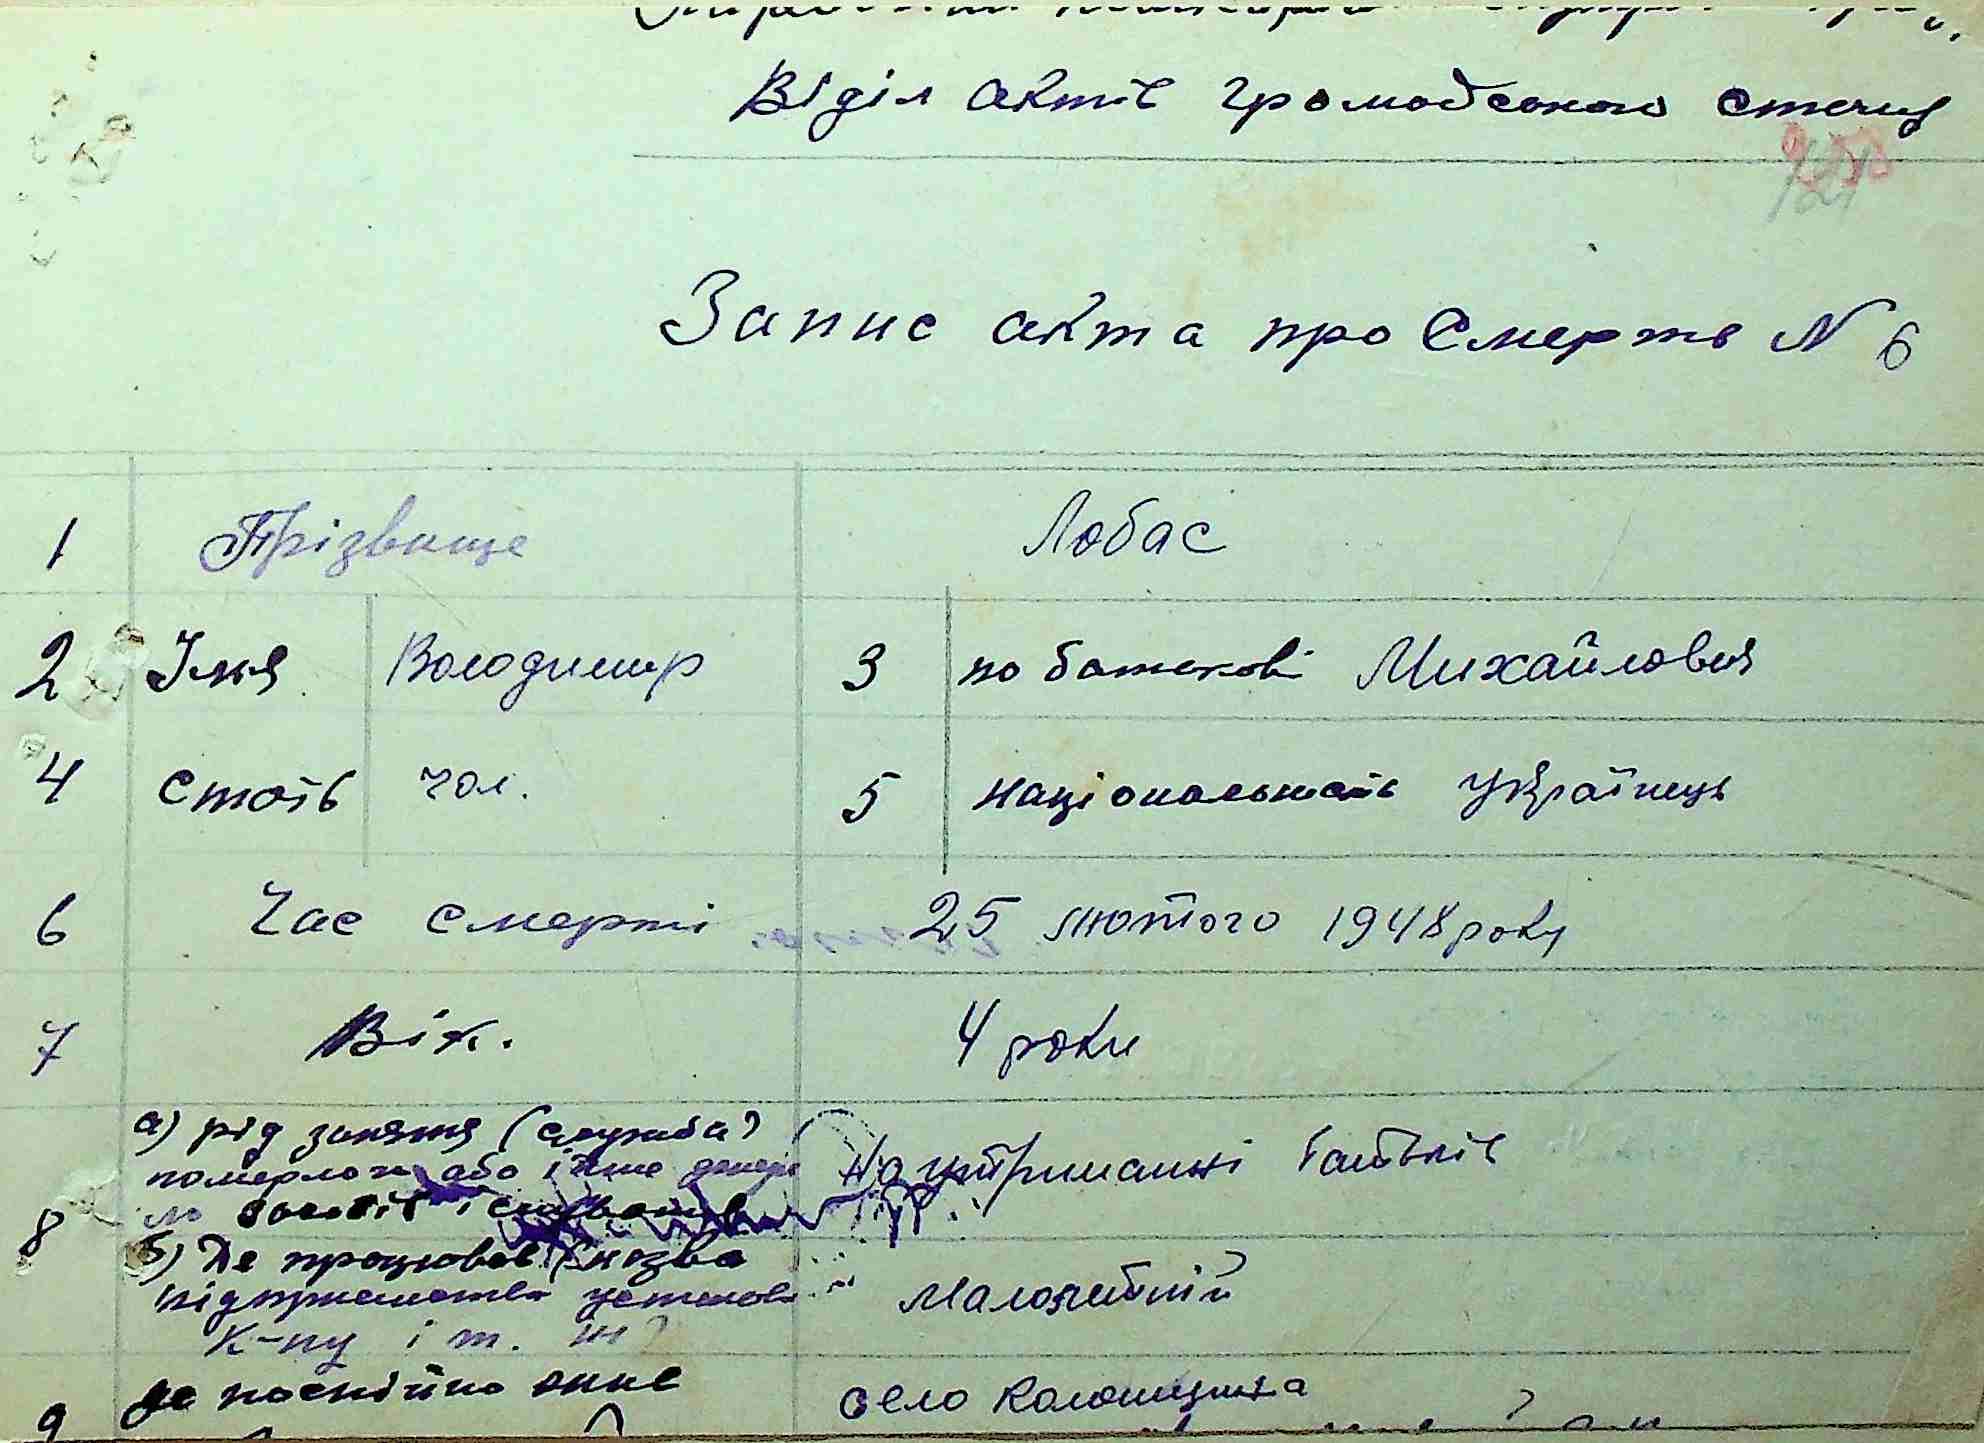 Віділ актів громадського стану
Запис акта про Смерть N 6
1 Прізвище Лобас
2 Імя Володимир 3 по батькові Михайлович
4 стать чол. 5 національність Українець
6 Час смерті 25 лютого 1948 року
7 Вік. 4 роки
а) рід заняття (служба)
померлого або інше джере На утриманні батьків
8 ло засобів існування
б) Де працював (назва
підприємства установ Малолітній
к-пу і т.
9 де постійно жив село Колонщина